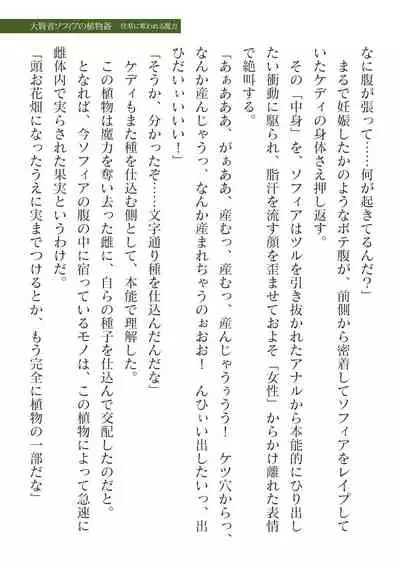 大賢者ソフィアの植物姦　伐採に奪われる魔力
なに腹が張って……何が起きてるんだ？」
まるで妊娠したかのようなボテ腹が、前側から密着してソフィアをレイプして
いたケディの身体さえ押し返す。
その「中身」を、ソフィアはツルを引き抜かれたアナルから本能的にひり出し
たい衝動に駆られ、脂汗を流す顔を歪ませておよそ「女性」からかけ離れた表情
で絶叫する。
「あぁあああ、がぁああ、産むっ、産むっ、産んじゃうぅうう！　ケツ穴からっ、
なんか産んじゃうっ、なんか産まれちゃうのぉおお！　んひぃい出したいっ、出
ひだいぃいいいい！」
「そうか、分かったぞ……文字通り種を仕込んだんだな」
ケディもまた種を仕込む側として、本能で理解した。
この植物は魔力を奪い去った雌に、自らの種子を仕込んで交配したのだと。
となれば、今ソフィアの腹の中に宿っているモノは、この植物によって急速に
雌体内で実らされた果実というわけだ。
「頭お花畑になったうえに実までつけるとか、もう完全に植物の一部だな」